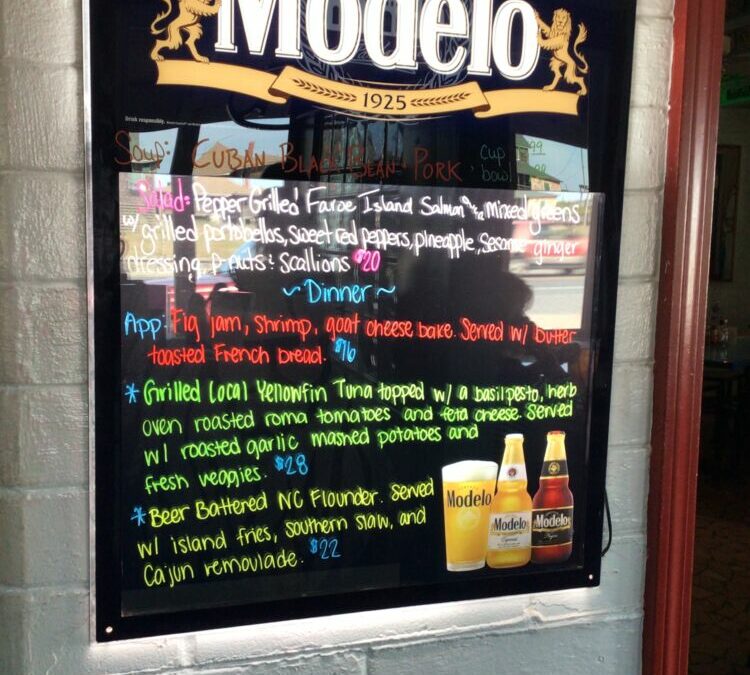 Modelo
1925
Drink responsibly.
Soup: CUBAN BLACK BEAN & PORK cup
bowl
Salad: Pepper Grilled Faroe Island Salmon mixed greens
w/ grilled portobellos, sweet red peppers, pineapple, sesame ginger
dressing, p-nuts & scallions $20
~ Dinner ~
App: Fig jam, shrimp, goat cheese bake. Served w/ butter
toasted French bread. $16
* Grilled Local Yellowfin Tuna topped w/ a basil pesto, herb
oven roasted roma tomatoes and feta cheese. Served
w/ roasted garlic mashed potatoes and
fresh veggies. $28
* Beer Battered NC Flounder. Served
w/ island fries, southern slaw, and
Cajun remoulade. $22
Modelo
Modelo
Modelo